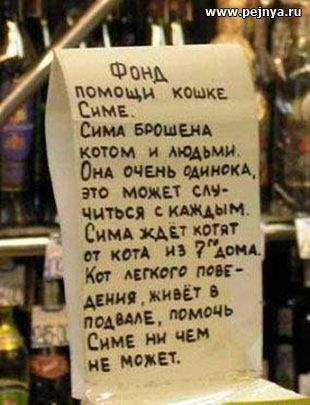 www.pejnya.ru
Фонд
помощи кошке
Симе.
Сима брошена
котом и людьми.
Она очень одинока,
это может слу-
читься с каждым.
Сима ждёт котят
от кота из 7го дома.
Кот легкого пове-
дения, живёт в
подвале, помочь
Симе ни чем
не может.